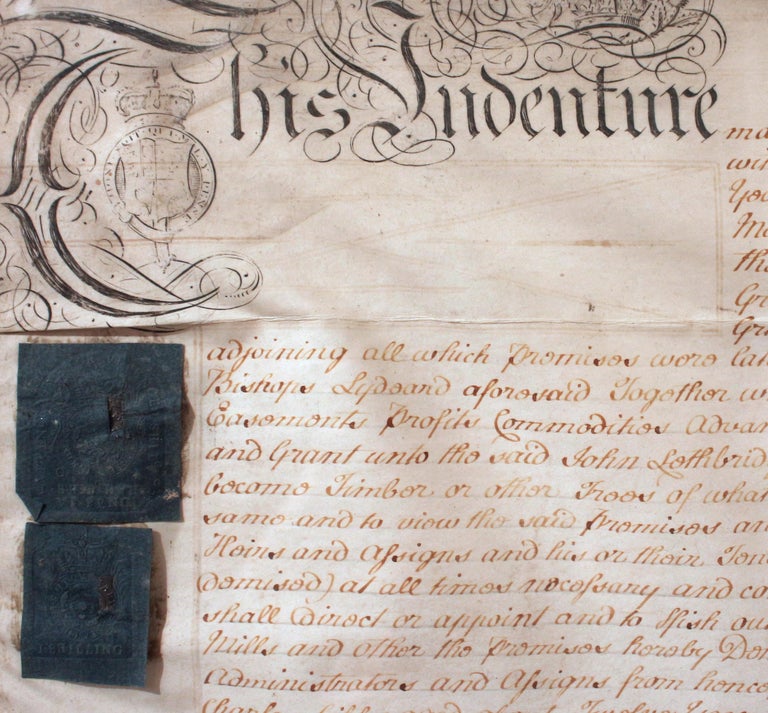 This Indenture
ma
wi
Yea
Ma
tha
Gr
Gra
adjoining all which Premises were lat
Bishops Lydeard aforesaid Together w
Easements Profits Commodities Advan
and Grant unto the said John Lethbrid
become Timber or other Trees of what
same and to view the said Premises an
Heirs and Assigns and his or their Ten
Demised) at all times necessary and co
shall direct or appoint and to ffish ou
Mills and other the Premises hereby Dem
Administrators and Assigns from hence
SHILLING